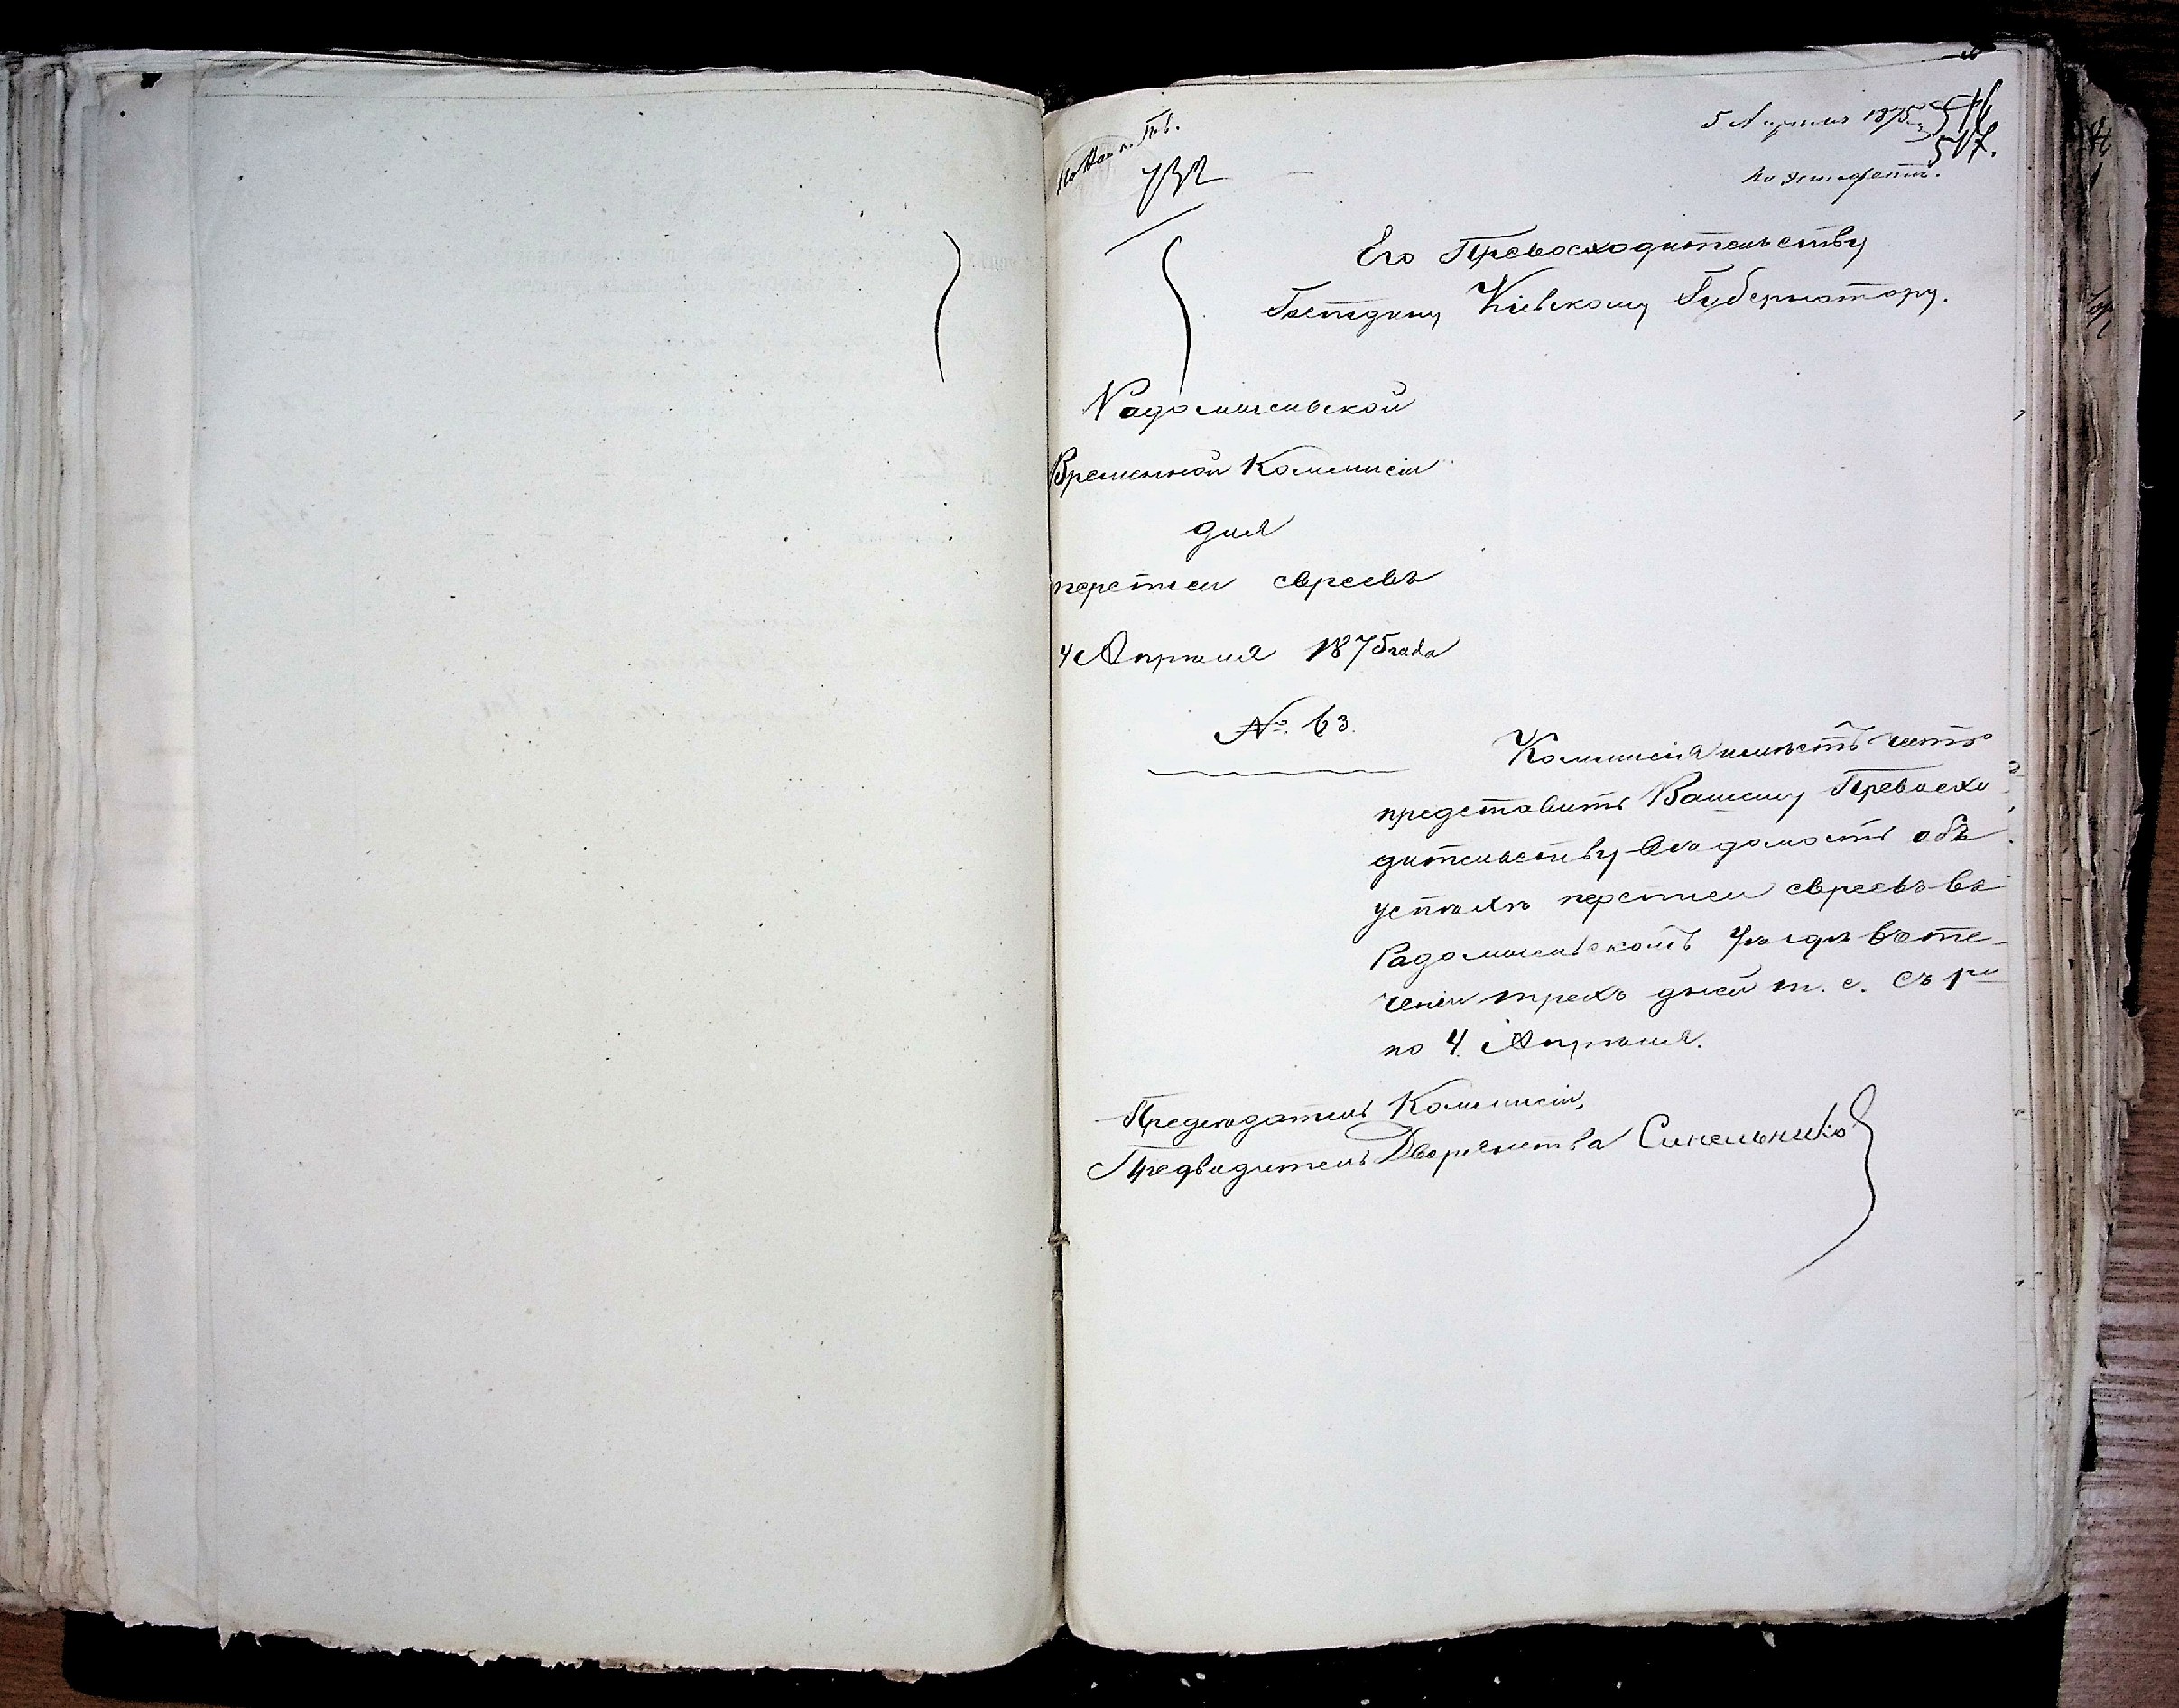 5 Апреля 1875 г.
546
517.
по эстафетѣ.
732
Его Превосходительству
Господину Кіевскому Губернатору.
Радомысльской
Временной Коммисіи
для
переписи евреевъ
4 Апрѣля 1875 года
№ 63.
Коммисія имѣетъ честь
представить Вашему Превосхо
дительству вѣдомость объ
успѣхѣ переписи евреевъ въ
Радомысльскомъ уѣздѣ въ те-
ченіи трехъ дней т. е. съ 1го
по 4 Апрѣля.
Предсѣдатель Коммисіи,
Предводитель Дворянства Синельниковъ